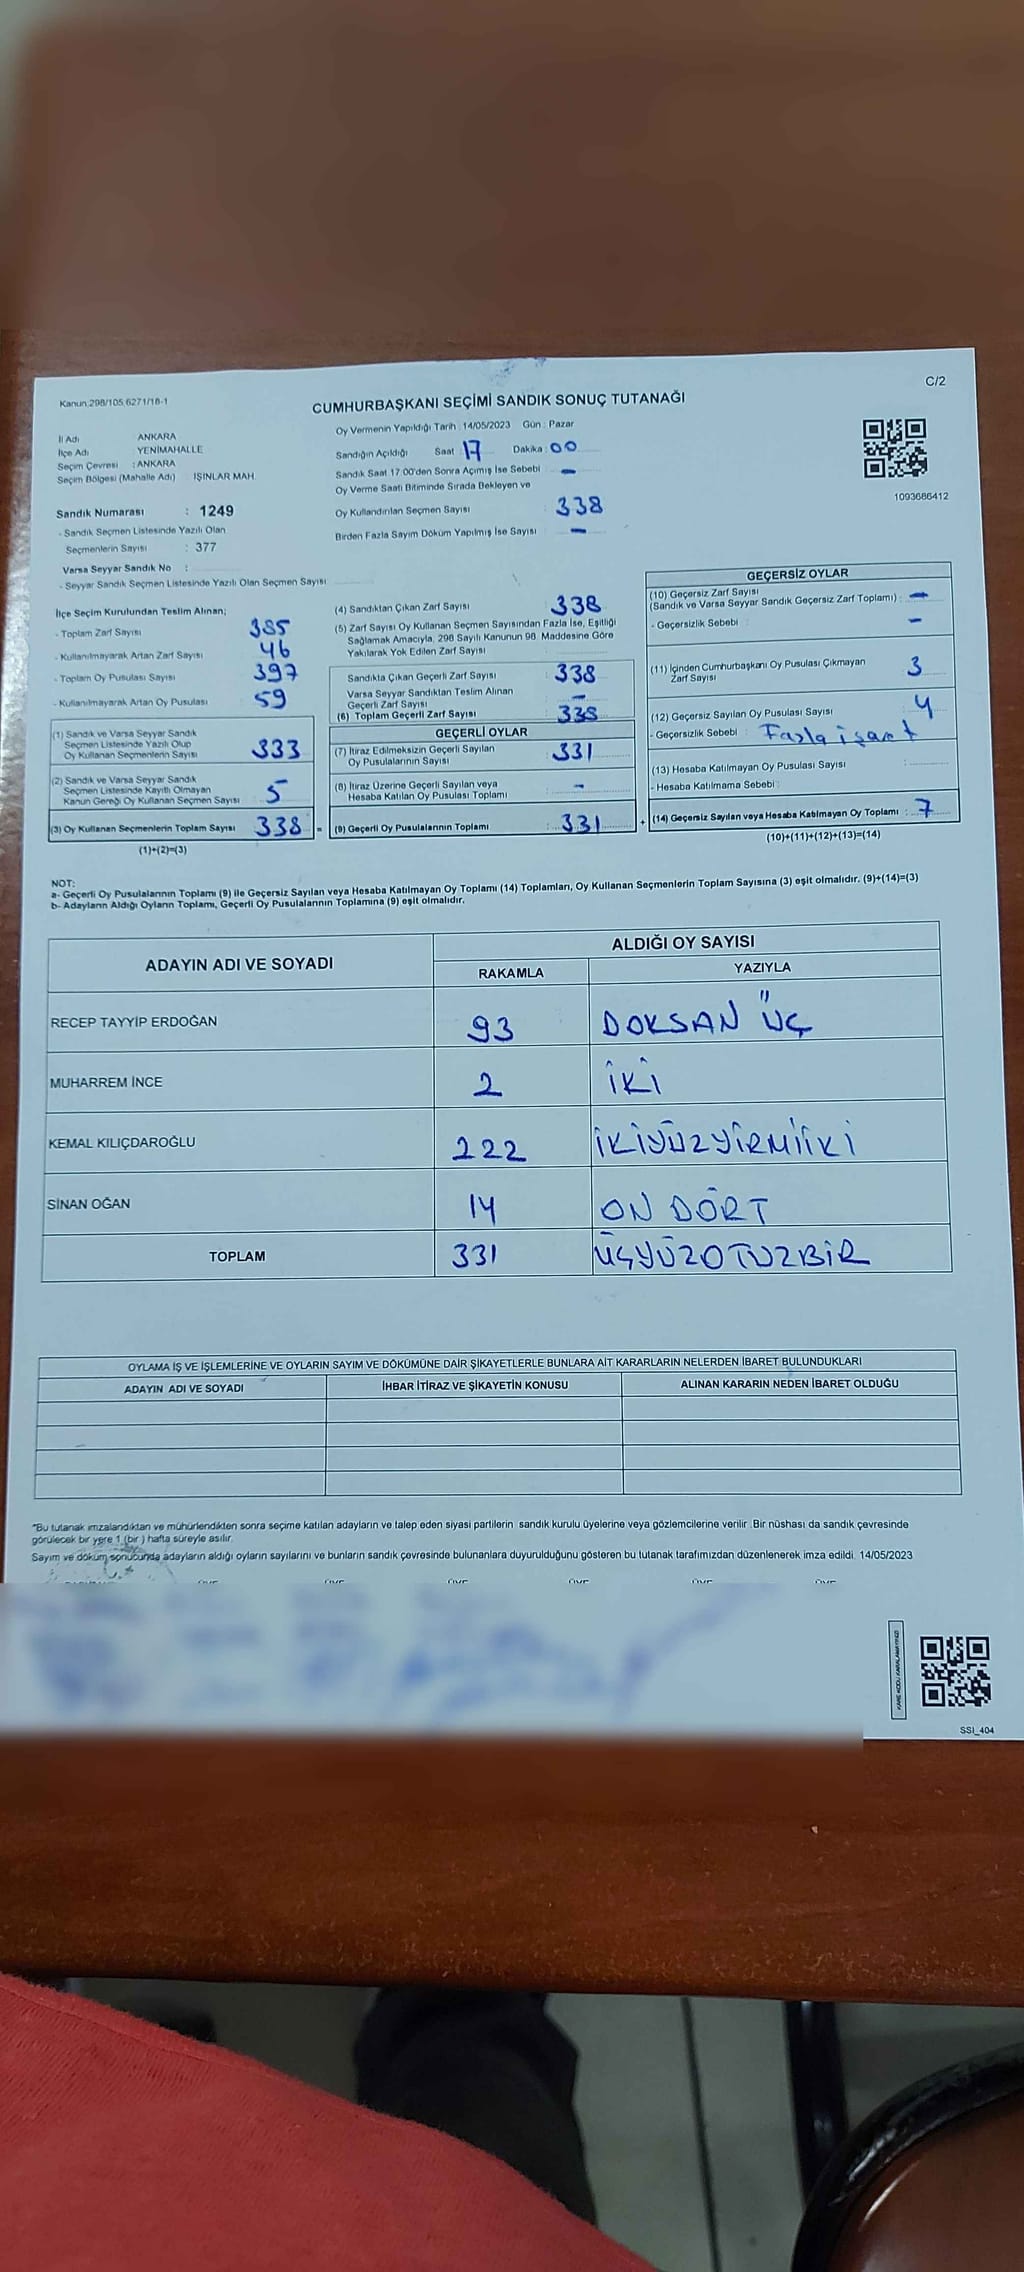 C/2
Kanun.298/105,6271/18-1
CUMHURBAŞKANI SEÇİMİ SANDIK SONUÇ TUTANAĞI
İl Adı ANKARA
İlçe Adı YENİMAHALLE
Seçim Çevresi : ANKARA
Seçim Bölgesi (Mahalle Adı) IŞINLAR MAH.
Sandık Numarası : 1249
- Sandık Seçmen Listesinde Yazılı Olan
Seçmenlerin Sayısı : 377
Varsa Seyyar Sandık No :
- Seyyar Sandık Seçmen Listesinde Yazılı Olan Seçmen Sayısı
Oy Vermenin Yapıldığı Tarih : 14/05/2023 Gün : Pazar
Sandığın Açıldığı Saat : 17 Dakika : 00
Sandık Saat 17:00'den Sonra Açılmış İse Sebebi : -
Oy Verme Saati Bitiminde Sırada Bekleyen ve
Oy Kullandırılan Seçmen Sayısı : 338
Birden Fazla Sayım Döküm Yapılmış İse Sayısı : -
1093686412
İlçe Seçim Kurulundan Teslim Alınan;
- Toplam Zarf Sayısı 385
- Kullanılmayarak Artan Zarf Sayısı 46
- Toplam Oy Pusulası Sayısı 397
- Kullanılmayarak Artan Oy Pusulası 59
(1) Sandık ve Varsa Seyyar Sandık
Seçmen Listesinde Yazılı Olup
Oy Kullanan Seçmenlerin Sayısı 333
(2) Sandık ve Varsa Seyyar Sandık
Seçmen Listesinde Kayıtlı Olmayan
Kanun Gereği Oy Kullanan Seçmen Sayısı 5
(3) Oy Kullanan Seçmenlerin Toplam Sayısı 338 =
(1)+(2)=(3)
(4) Sandıktan Çıkan Zarf Sayısı 338
(5) Zarf Sayısı Oy Kullanan Seçmen Sayısından Fazla İse, Eşitliği
Sağlamak Amacıyla, 298 Sayılı Kanunun 98. Maddesine Göre
Yakılarak Yok Edilen Zarf Sayısı
Sandıkta Çıkan Geçerli Zarf Sayısı 338
Varsa Seyyar Sandıktan Teslim Alınan
Geçerli Zarf Sayısı -
(6) Toplam Geçerli Zarf Sayısı 338
GEÇERLİ OYLAR
(7) İtiraz Edilmeksizin Geçerli Sayılan
Oy Pusulalarının Sayısı : 331
(8) İtiraz Üzerine Geçerli Sayılan veya
Hesaba Katılan Oy Pusulası Toplamı : -
(9) Geçerli Oy Pusulalarının Toplamı : 331 +
GEÇERSİZ OYLAR
(10) Geçersiz Zarf Sayısı
(Sandık ve Varsa Seyyar Sandık Geçersiz Zarf Toplamı) : -
- Geçersizlik Sebebi : -
(11) İçinden Cumhurbaşkanı Oy Pusulası Çıkmayan
Zarf Sayısı 3
(12) Geçersiz Sayılan Oy Pusulası Sayısı : 4
- Geçersizlik Sebebi : Fazla işaret
(13) Hesaba Katılmayan Oy Pusulası Sayısı :
- Hesaba Katılmama Sebebi :
(14) Geçersiz Sayılan veya Hesaba Katılmayan Oy Toplamı : 7
(10)+(11)+(12)+(13)=(14)
NOT:
a- Geçerli Oy Pusulalarının Toplamı (9) ile Geçersiz Sayılan veya Hesaba Katılmayan Oy Toplamı (14) Toplamları, Oy Kullanan Seçmenlerin Toplam Sayısına (3) eşit olmalıdır. (9)+(14)=(3)
b- Adayların Aldığı Oyların Toplamı, Geçerli Oy Pusulalarının Toplamına (9) eşit olmalıdır.
ADAYIN ADI VE SOYADI ALDIĞI OY SAYISI
RAKAMLA YAZIYLA
RECEP TAYYİP ERDOĞAN 93 DOKSAN ÜÇ
MUHARREM İNCE 2 İKİ
KEMAL KILIÇDAROĞLU 222 İKİYÜZYİRMİİKİ
SİNAN OĞAN 14 ON DÖRT
TOPLAM 331 ÜÇYÜZOTUZBİR
OYLAMA İŞ VE İŞLEMLERİNE VE OYLARIN SAYIM VE DÖKÜMÜNE DAİR ŞİKAYETLERLE BUNLARA AİT KARARLARIN NELERDEN İBARET BULUNDUKLARI
ADAYIN ADI VE SOYADI İHBAR İTİRAZ VE ŞİKAYETİN KONUSU ALINAN KARARIN NEDEN İBARET OLDUĞU
*Bu tutanak imzalandıktan ve mühürlendikten sonra seçime katılan adayların ve talep eden siyasi partilerin sandık kurulu üyelerine veya gözlemcilerine verilir. Bir nüshası da sandık çevresinde
görülecek bir yere 1 (bir) hafta süreyle asılır.
Sayım ve döküm sonucunda adayların aldığı oyların sayılarını ve bunların sandık çevresinde bulunanlara duyurulduğunu gösteren bu tutanak tarafımızdan düzenlenerek imza edildi. 14/05/2023
ÜYE ÜYE ÜYE ÜYE ÜYE ÜYE
KARE KODU KARALAMAYINIZ!
SSİ_404